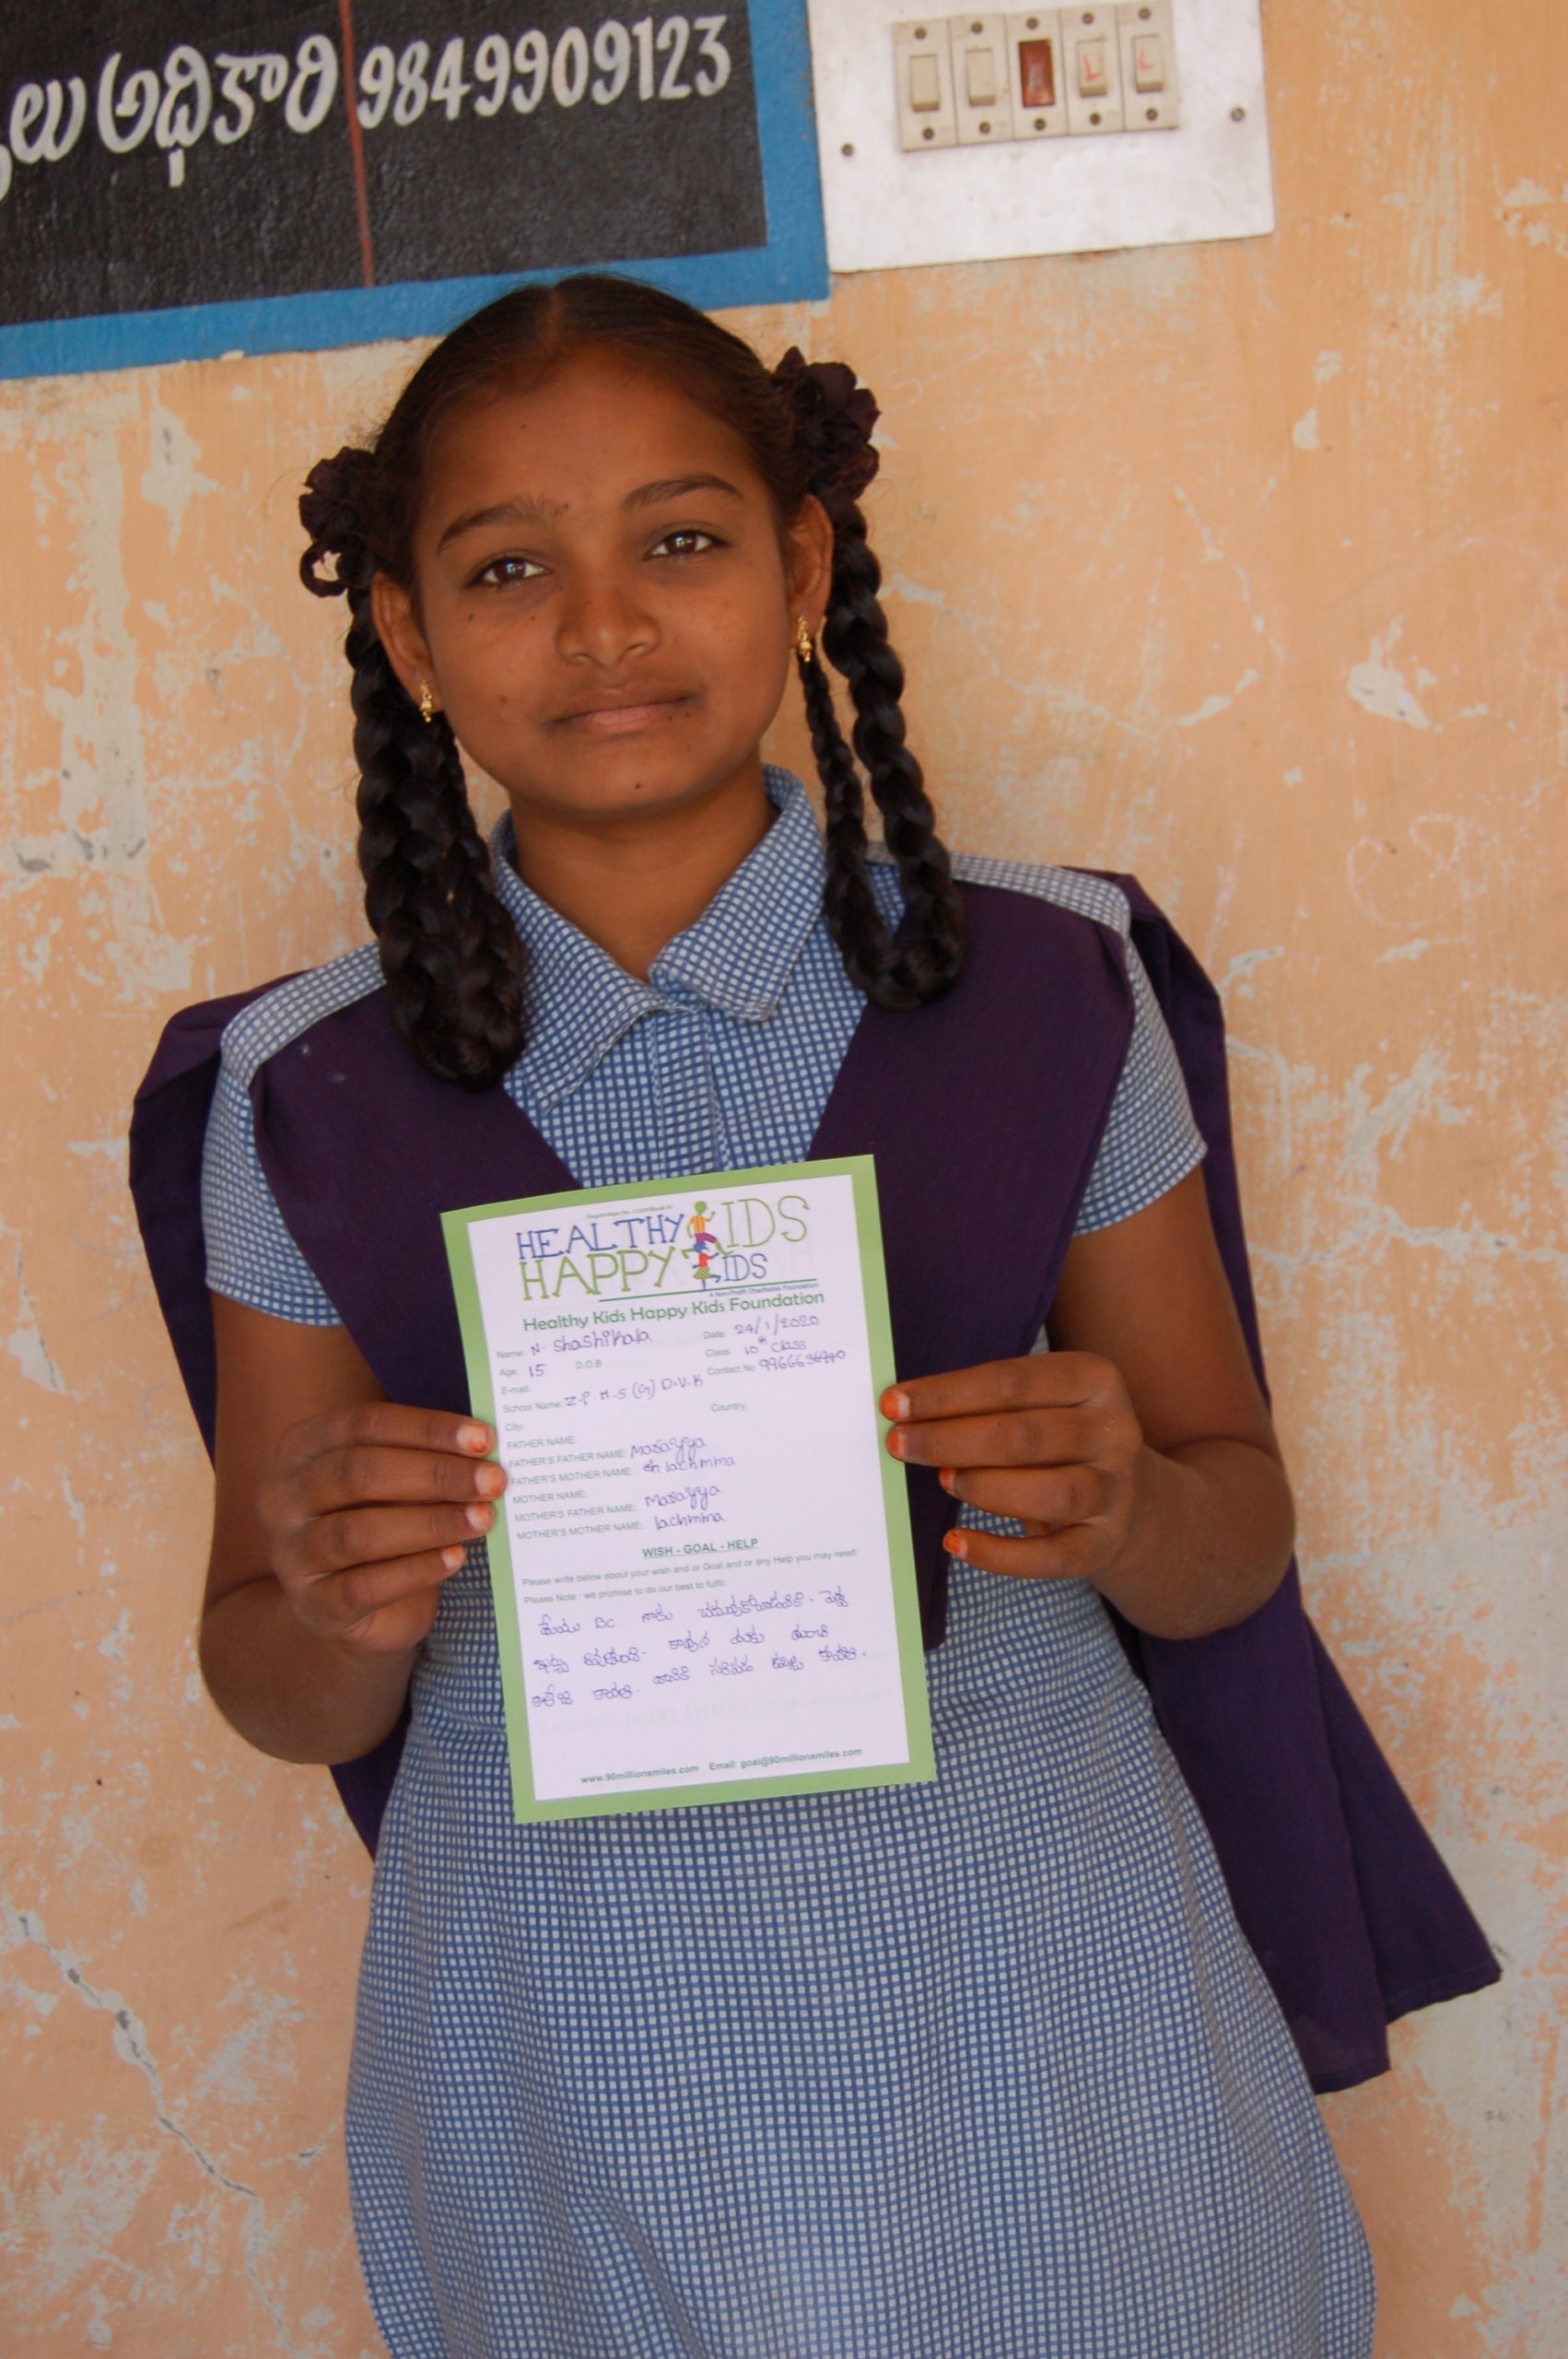 లు అధికారి 9849909123
HEALTHY KIDS
HAPPY KIDS
A Non-Profit Charitable Foundation
Healthy Kids Happy Kids Foundation
Name: N. Shashikala Date: 24/1/2020
Age: 15 D.O.B Class: 10th Class
E-mail: Contact No
School Name: Z.P.H.S (G) D.V.K
City: Country:
FATHER NAME:
FATHER'S FATHER NAME: Masayya
FATHER'S MOTHER NAME: lachmma
MOTHER NAME:
MOTHER'S FATHER NAME: Masayya
MOTHER'S MOTHER NAME: lachmma
WISH - GOAL - HELP
Please write below about your wish and or Goal and or any Help you may need:
Please Note : we promise to do our best to fulfil:
మేము BC మాకు చదువుకోవడానికి.
కావున మాకు మంచి
కాలేజి కావాలి. దానికి సరిపడ డబ్బు కావాలి.
www.90millionsmiles.com Email: goal@90millionsmiles.com